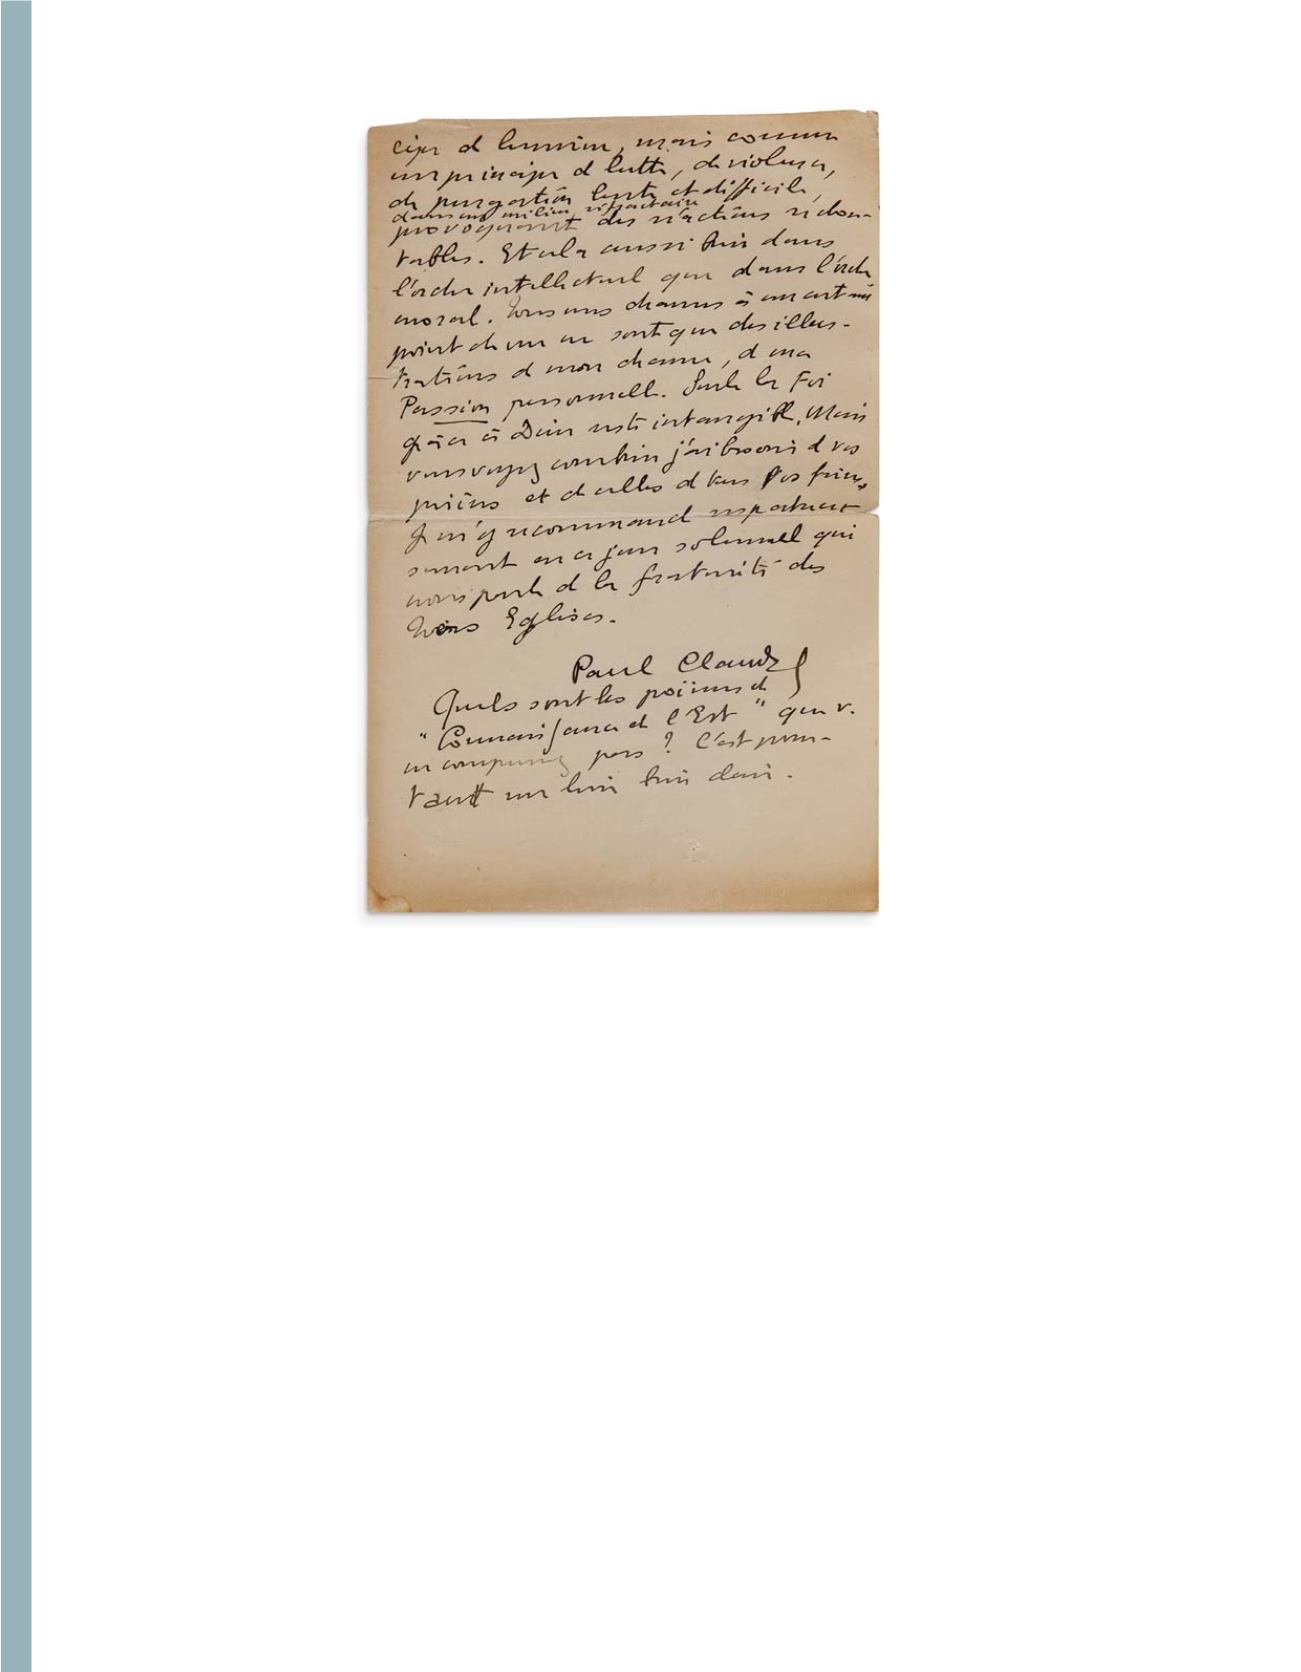 cipe de lumière, mais comme
un principe de lutte, de violence,
de purgation lente et difficile,
dans un milieu réfractaire
provoquant des réactions redou-
tables. Et cela aussi bien dans
l'ordre intellectuel que dans l'ordre
moral. Tous mes drames à un certain
point de vue ne sont que des illus-
trations de mon drame, de ma
Passion personnelle. Seule la Foi
grâce à Dieu reste intangible. Mais
vous voyez combien j'ai besoin de vos
prières et de celles de tous vos frères,
Je m'y recommande respectueu-
sement en ce jour solennel qui
nous parle de la fraternité des
Eglises.
Paul Claudel
Quels sont les poèmes de
"Connaissance de l'Est" que v.
ne comprenez pas ? C'est pour-
tant un livre bien clair.